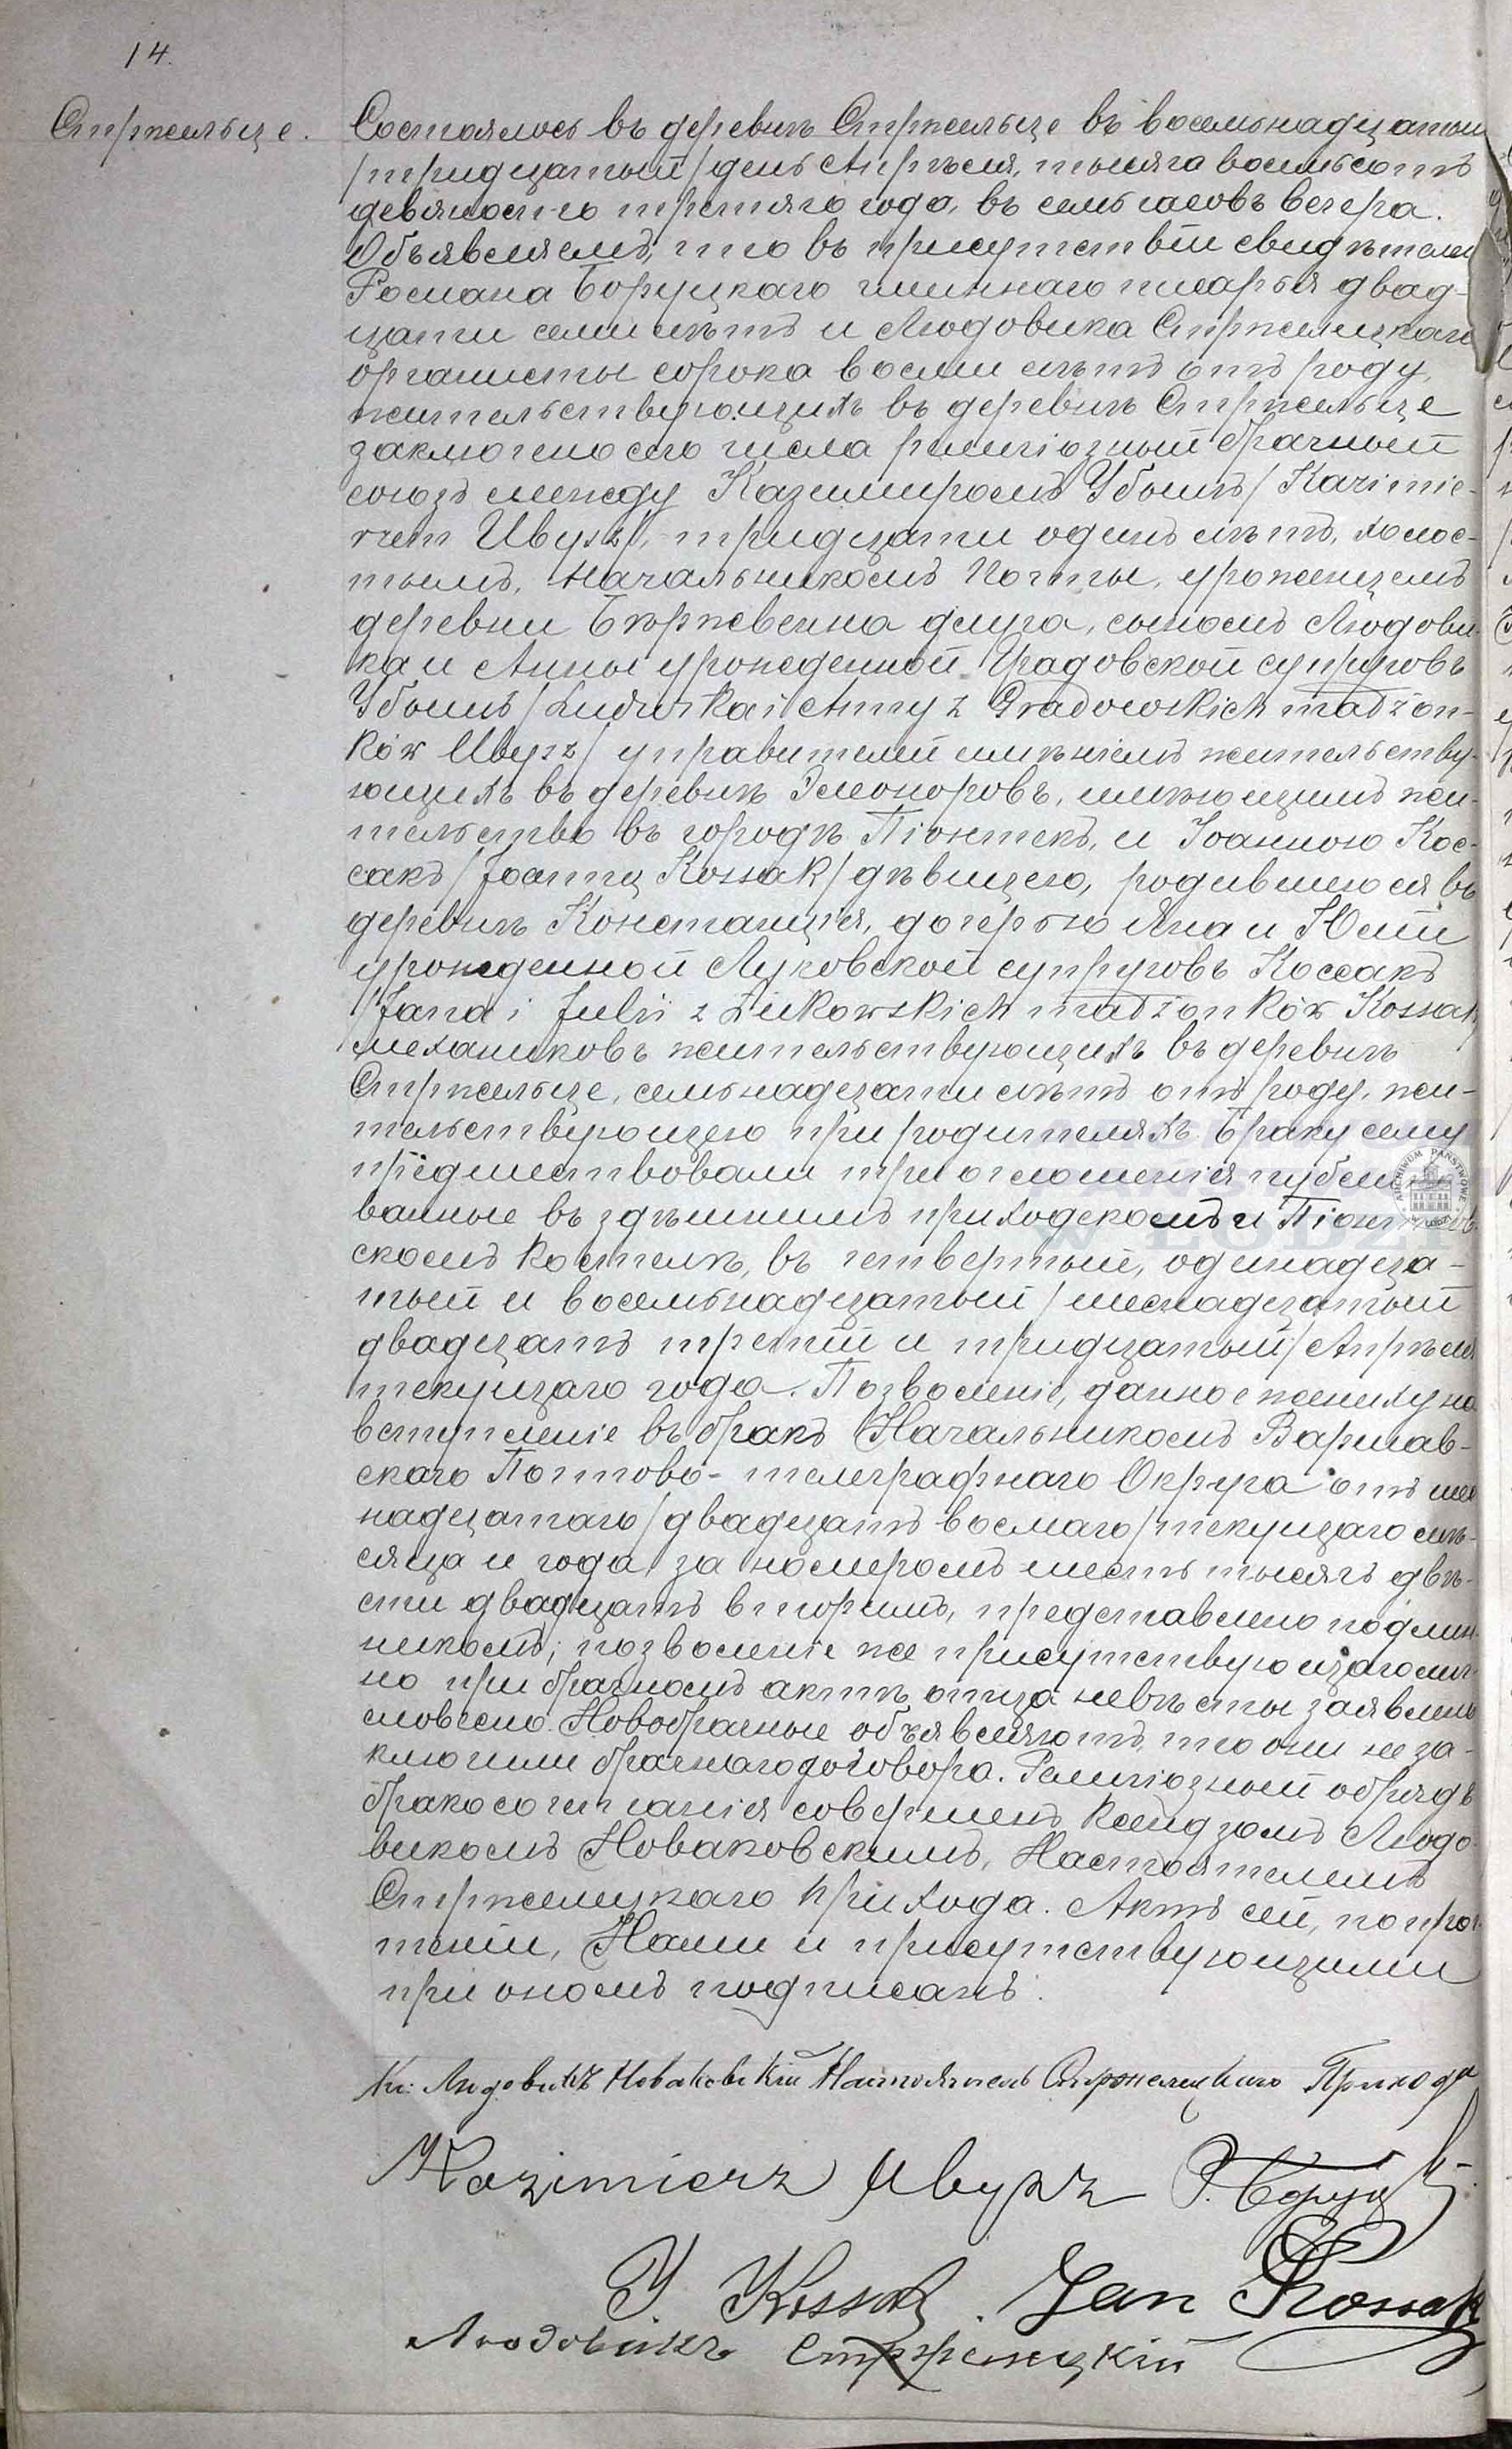 14.
Стржельце.
Состоялось въ деревнѣ Стржельце въ восемьнадцатый
/тридцатый/ день Апрѣля, тысяча восемьсотъ
девяносто третяго года, въ семь часовъ вечера.
Объявляемъ, что въ присутствіи свидѣтелей
Романа Боруцкаго гминнаго писарья двад-
цати семи лѣтъ и Людовика Стржелецкаго
органисты сорока восми лѣтъ отъ роду,
жительствующихъ въ деревнѣ Стржельце
заключено сего числа религіозный брачный
союзъ между Казимиромъ Убышъ /Kazimie-
rzem Ubysz/, тридцати одинъ лѣтъ, холос-
тымъ, Начальникомъ Почты, уроженцемъ
деревни Бѣржвенна длуга, сыномъ Людови-
ка и Анны урожденной Градовской супруговъ
Убышъ /Ludwika i Anny z Gradowskich małżon-
ków Ubysz/ управителей имѣніемъ жительству-
ющихъ въ деревнѣ Элеоноровъ, имѣющимъ жи-
тельство въ городѣ Піонтекъ, и Іоанною Кос-
сакъ /Joanną Kossak/ дѣвицею, родившеюся въ
деревнѣ Констанція, дочерью Яна и Юліи
урожденной Луковской супруговъ Коссакъ
/Jana i Julii z Łukowskich małżonków Kossak/
механиковъ жительствующихъ въ деревнѣ
Стржельце, семьнадцати лѣтъ отъ роду, жи-
тельствующею при родителяхъ. Браку сему
предшествовали три оглошенія публико-
ванные въ здѣшнимъ приходскомъ и Піонтков-
скомъ Костелѣ, въ четвертый, одинадца-
тый и восемьнадцатый /шеснадцатый
двадцать третій и тридцатый/ Апрѣля
текущаго года. Позволеніе, данное жениху на
вступленіе въ бракъ Начальникомъ Варшав-
скаго Почтово-телеграфнаго Округа отъ шес-
надцатаго /двадцать восмаго/ текущаго мѣ-
сяца и года за номеромъ шесть тысячъ двѣ-
сти двадцать вторимъ, представлено подлин-
никомъ; позволеніе же присутствующаго лич-
но при брачномъ актѣ отца невѣсты заявлено
словесно. Новобрачные объявляютъ, что они не за-
ключили брачнаго договора. Религіозный обрядъ
бракосочетанія совершенъ Ксендзомъ Людо-
викомъ Новаковскимъ, Настоятелемъ
Стржелецкаго прихода. Актъ сей, по проч-
теніи, Нами и присутствующими
при ономъ подписанъ.
Кс: Людовикъ Новаковскій Настоятель Стржелецкаго Прихода
Kazimierz Ubysz Р. Боруцкій
J. Kossak. Jan Kossak
Людовикъ Стржелецкій
ARCHIWUM PAŃSTWOWE
W ŁODZI